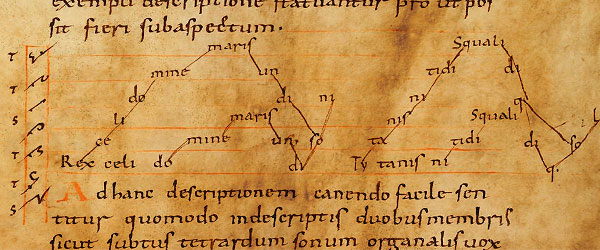 exempli descriptione statuantur pro ut pos
sit fieri subaspectum.
T maris Squali
T mine un tidi di
T do di ni ni q
S li maris nis Squali
T ce mine un so ta tidi di so
T Rex celi do di Ty tanis ni q.
S
Ad hanc descriptionem canendo facile sen
titur quomodo indescriptis duobus membris
sicut subtus tetrardum sonum organalis vox